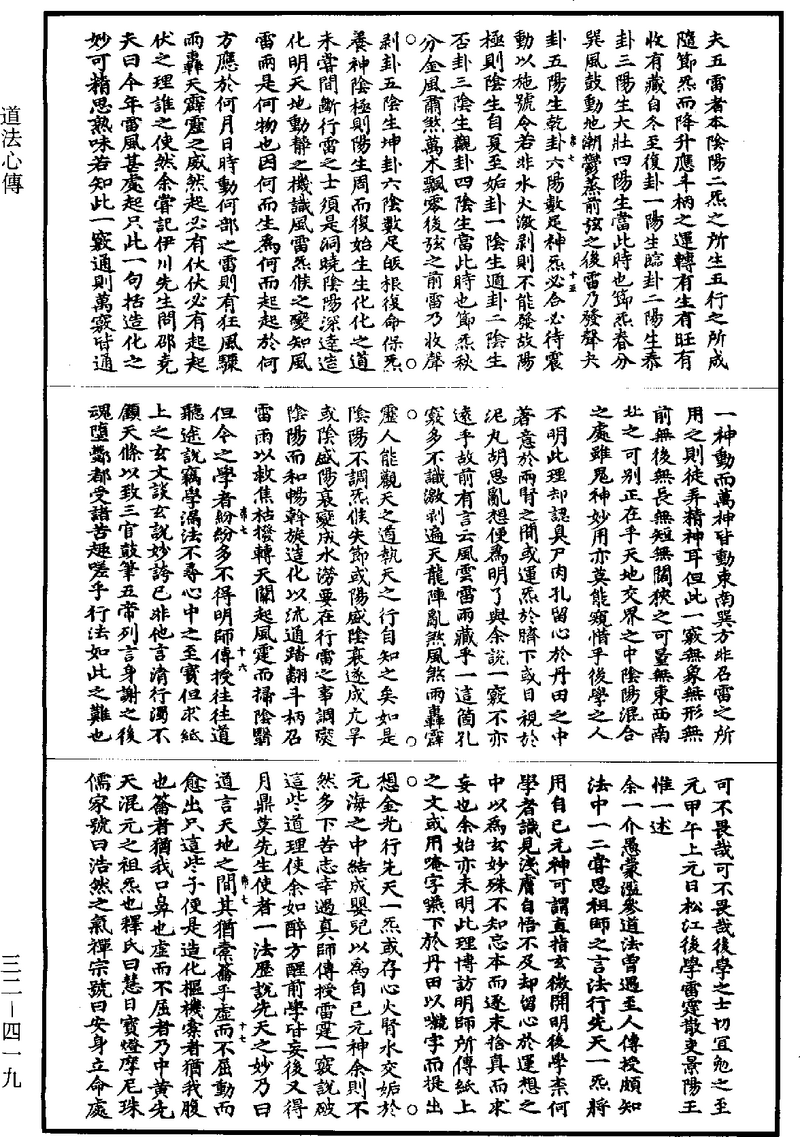 夫五雷者本陰陽二炁之所生五行之所成
隨節炁而降升應斗柄之運轉有生有旺有
收有藏自冬至復卦一陽生臨卦二陽生泰
卦三陽生大壯四陽生當此時也節炁春分
巽風鼓動地潮鬱蒸前弦之後雷乃發聲夬
席七 十五
卦五陽生乾卦六陽數足神炁必合必待震
動以施號令若非水火激剥則不能發故陽
極則陰生自夏至姤卦一陰生遯卦二陰生
否卦三陰生觀卦四陰生當此時也節炁秋
分金風肅煞萬木飄零後弦之前雷乃收聲
○ ○
剥卦五陰生坤卦六陰數足皈根復命保炁
養神陰極則陽生周而復始生生化化之道
未嘗間斷行雷之士須是洞曉陰陽深達造
化明天地動靜之機識風雷炁候之變知風
雷雨是何物也因何而生為何而起起於何
方應於何月日時動何部之雷則有狂風驟
雨轟天霹靂之威然起必有伏伏必有起起
伏之理誰之使然余嘗記伊川先生問邵堯
夫曰今年雷風甚處起只此一句括造化之
妙可精思熟味若知此一竅通則萬竅皆通
一神動而萬神皆動東南巽方非召雷之所
用之則徒弄精神耳但此一竅無象無形無
前無後無長無短無闊狹之可量無東西南
北之可別正在乎天地交界之中陰陽混合
之處雖鬼神妙用亦莫能窺惜乎後學之人
不明此理却認臭尸肉孔留心於丹田之中
著意於兩腎之間或運炁於臍下或目視於
泥丸胡思亂想便為明了與余說一竅不亦
遠乎故前有言云風雲雷雨藏乎一這箇孔
竅多不識激剥遍天龍陣亂煞風煞雨轟霹
○ ○
靂人能觀天之道執天之行自知之矣如是
陰陽不調炁候失節或陽盛陰衰遂成亢旱
或陰盛陽衰變成水澇要在行雷之事調爕
陰陽而和暢斡旋造化以流通踏翻斗柄召
雷雨以救焦枯撥轉天關起風霆而掃陰翳
席七 十六
但今之學者紛紛多不得明師傳授往往道
聽途說竊學漏法不尋心中之至寶但求紙
上之玄文談玄說妙誇已非他言清行濁不
顧天條以致三官鼓筆五帝列言身謝之後
魂墮酆都受諸苦趣嗟乎行法如此之難也
可不畏哉可不畏哉後學之士切宜勉之至
元甲午上元日松江後學雷霆散吏景陽王
惟一述
余一介愚蒙濫叅道法曾遇至人傳授頗知
法中一二嘗思祖師之言法行先天一炁將
用自已元神可謂直指玄微開明後學柰何
學者識見淺膚自悟不及却留心於運想之
中以為玄妙殊不知忘本而逐末捨真而求
妄也余始亦未明此理博訪明師所傳紙上
之文或用唵字嚥下於丹田以囕字而提出
○ ○
想金光行先天一炁或存心火腎水交姤於
元海之中結成嬰兒以為自已元神余則不
然多下苦志幸遇真師傳授雷霆一竅說破
這些道理使余如醉方醒前學皆妄後又得
月鼎莫先生使者一法歷說先天之妙乃曰
席七 十七
道言天地之間其猶橐籥乎虛而不屈動而
愈出只這些子便是造化樞機橐者猶我腹
也籥者猶我口鼻也虛而不屈者乃中黃先
天混元之祖炁也釋氏曰慧日寶燈摩尼珠
儒家號曰浩然之氣禪宗號曰安身立命處
道法心傳
三二－四一九